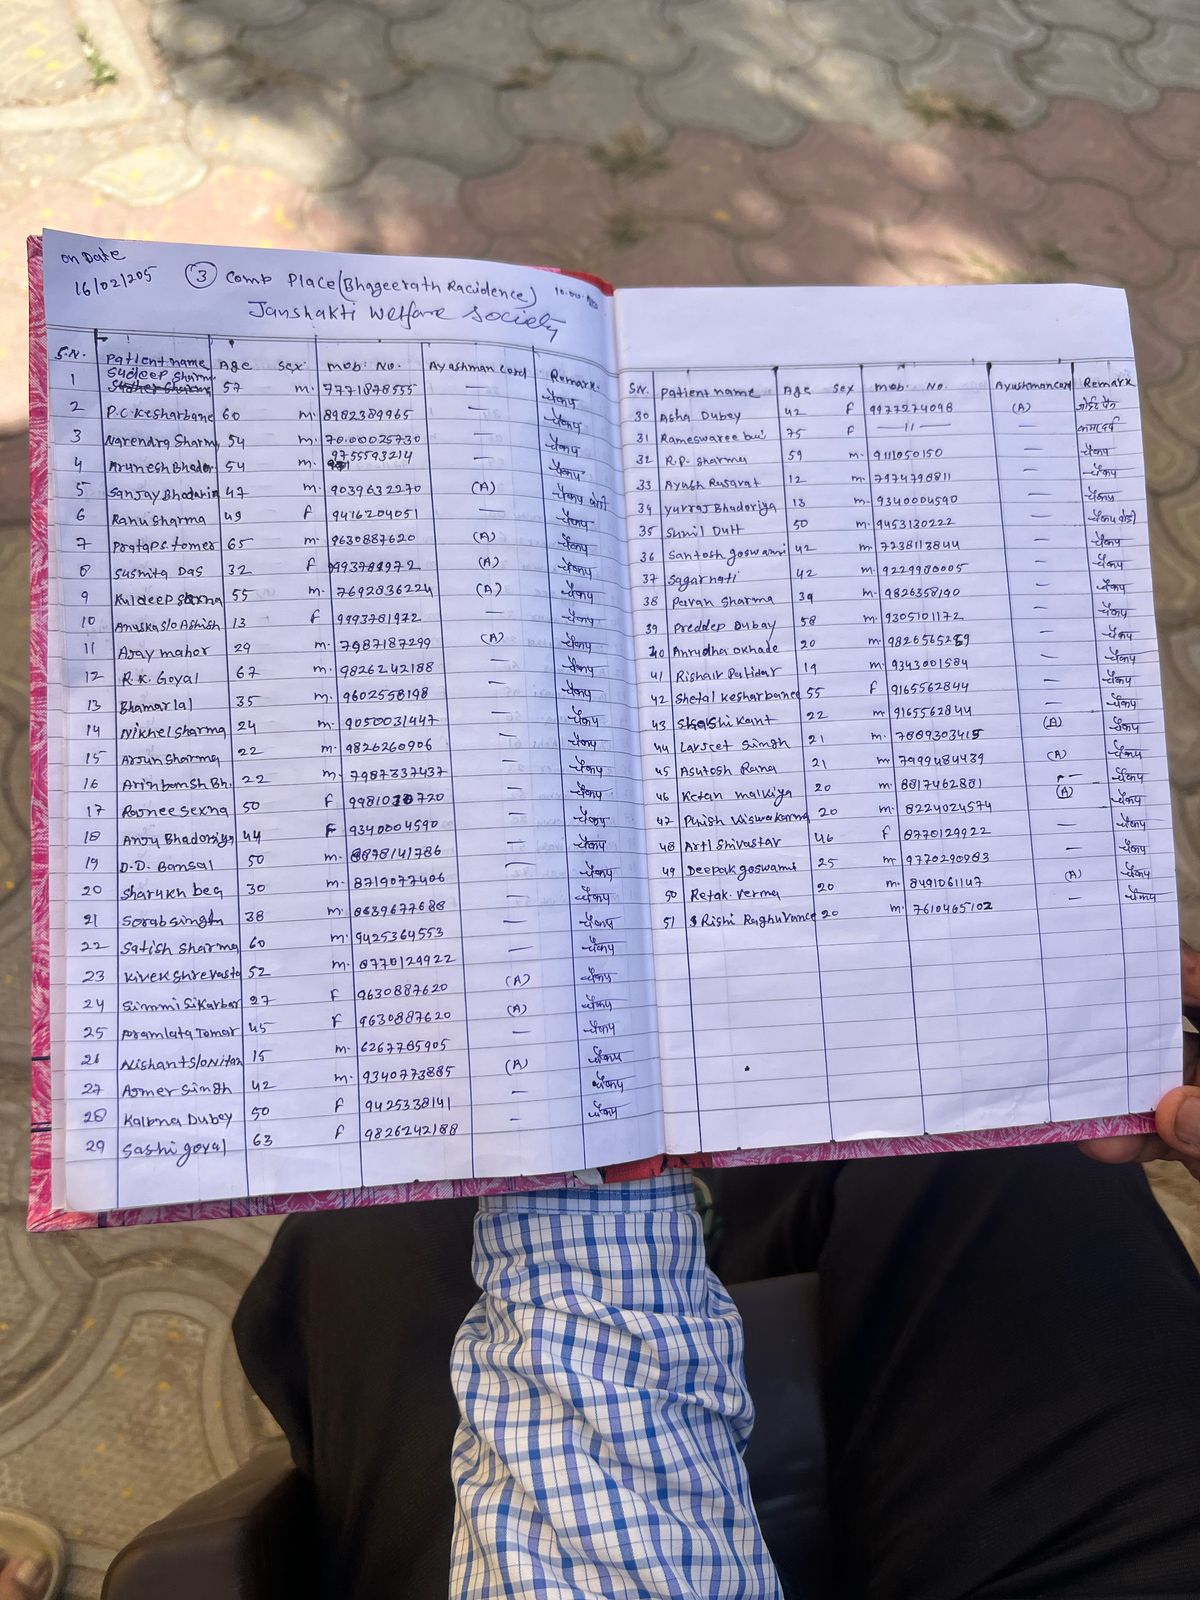 on Date
16/02/205 ③ Comp Place (Bhageerath Racidence)
Janshakti Welfare Society
S.N. Patient name Age Sex mob. No. Ayashman Card Remark
1 Sudeep Sharm 57 m. 7771878555 — चैकप
2 P.C. Kesharbane 60 m. 8982389965 — चैकप
3 Narendra Sharm 54 m. 7000025730 — चैकप
4 Arunesh Bhador 54 m. 9755593214 — चैकप
5 Sanjay Bhadaria 47 m. 9039632270 (A) चैकप
6 Ranu Sharma 49 f 9416204051 — चैकप
7 Pratap S. tomer 65 m. 9630887620 (A) चैकप
8 Susmita Das 32 f 9993781972 (A) चैकप
9 Kuldeep 55 m. 7692836224 (A) चैकप
10 Anuska s/o Ashish 13 f 9993781972 — चैकप
11 Ajay mahor 29 m. 7987187299 (A) चैकप
12 R.K. Goyal 67 m. 9826242188 — चैकप
13 Bhamarlal 35 m. 9602558198 — चैकप
14 Nikhel Sharma 24 m. 9050031447 — चैकप
15 Arjun Sharma 22 m. 9826260906 — चैकप
16 Arinbamsh Bh. 22 m. 7987337437 — चैकप
17 Rajnee Sexna 50 f 99810 720 — चैकप
18 Anju Bhadoriya 44 F 9340004590 — चैकप
19 D.D. Bamsal 50 m. 8898141786 — चैकप
20 Sharukh beg 30 m. 8719077406 — चैकप
21 Sorab singh 38 m. 8639677688 — चैकप
22 Satish Sharma 60 m. 9425364553 — चैकप
23 Vivek Shrevasta 52 m. 8770129922 — चैकप
24 Simmi Sikarbar 27 F 9630887620 (A) चैकप
25 Premlata Tomar 45 F 9630887620 (A) चैकप
26 Nishant S/o Nitan 15 m. 6267785905 — चैकप
27 Ajmer Singh 42 m. 9340773885 (A) चैकप
28 Kalpna Dubey 50 f 9425338141 — चैकप
29 Sashi goyal 63 f 9826242188 —
S.N. Patient name Age Sex mob. No. Ayushman card Remark
30 Asha Dubey 42 f 9977274098 (A)
31 Rameswaree bai 75 F —11— —
32 R.P. Sharma 59 m. 9111050150 — चैकप
33 Ayush Rusarat 12 m. 7974798811 — चैकप
34 yuvraj Bhadoriya 13 m. 9340004590 — चैकप
35 Sunil Dutt 50 m. 9453130222 — चैकप
36 Santosh goswami 42 m. 7238113844 — चैकप
37 Sagar nati 42 m. 9229980005 — चैकप
38 Pavan Sharma 39 m. 9826358190 — चैकप
39 Preddep Dubay 58 m. 9305101172 — चैकप
40 Anrudha okhade 20 m. 9826565289 — चैकप
41 Rishair Patidar 19 m. 9343001584 — चैकप
42 Shetal Kesharbanee 55 F 9165562844 — चैकप
43 Shashi Kant 22 m. 9165562844 — चैकप
44 Lavjeet Singh 21 m. 7009303415 (A) चैकप
45 Asutosh Raina 21 m. 7999484439 (A) चैकप
46 Ketan malviya 20 m. 8817462881 — चैकप
47 Piyish Viswakarma 20 m. 8224024574 (A) चैकप
48 Arti Shivastar 46 F 8770129922 — चैकप
49 Deepak goswami 25 m. 9770290983 — चैकप
50 Retak. verma 20 m. 8491061147 (A) चैकप
51 Rishi Raghuvance 20 m. 7610465102 — चैकप